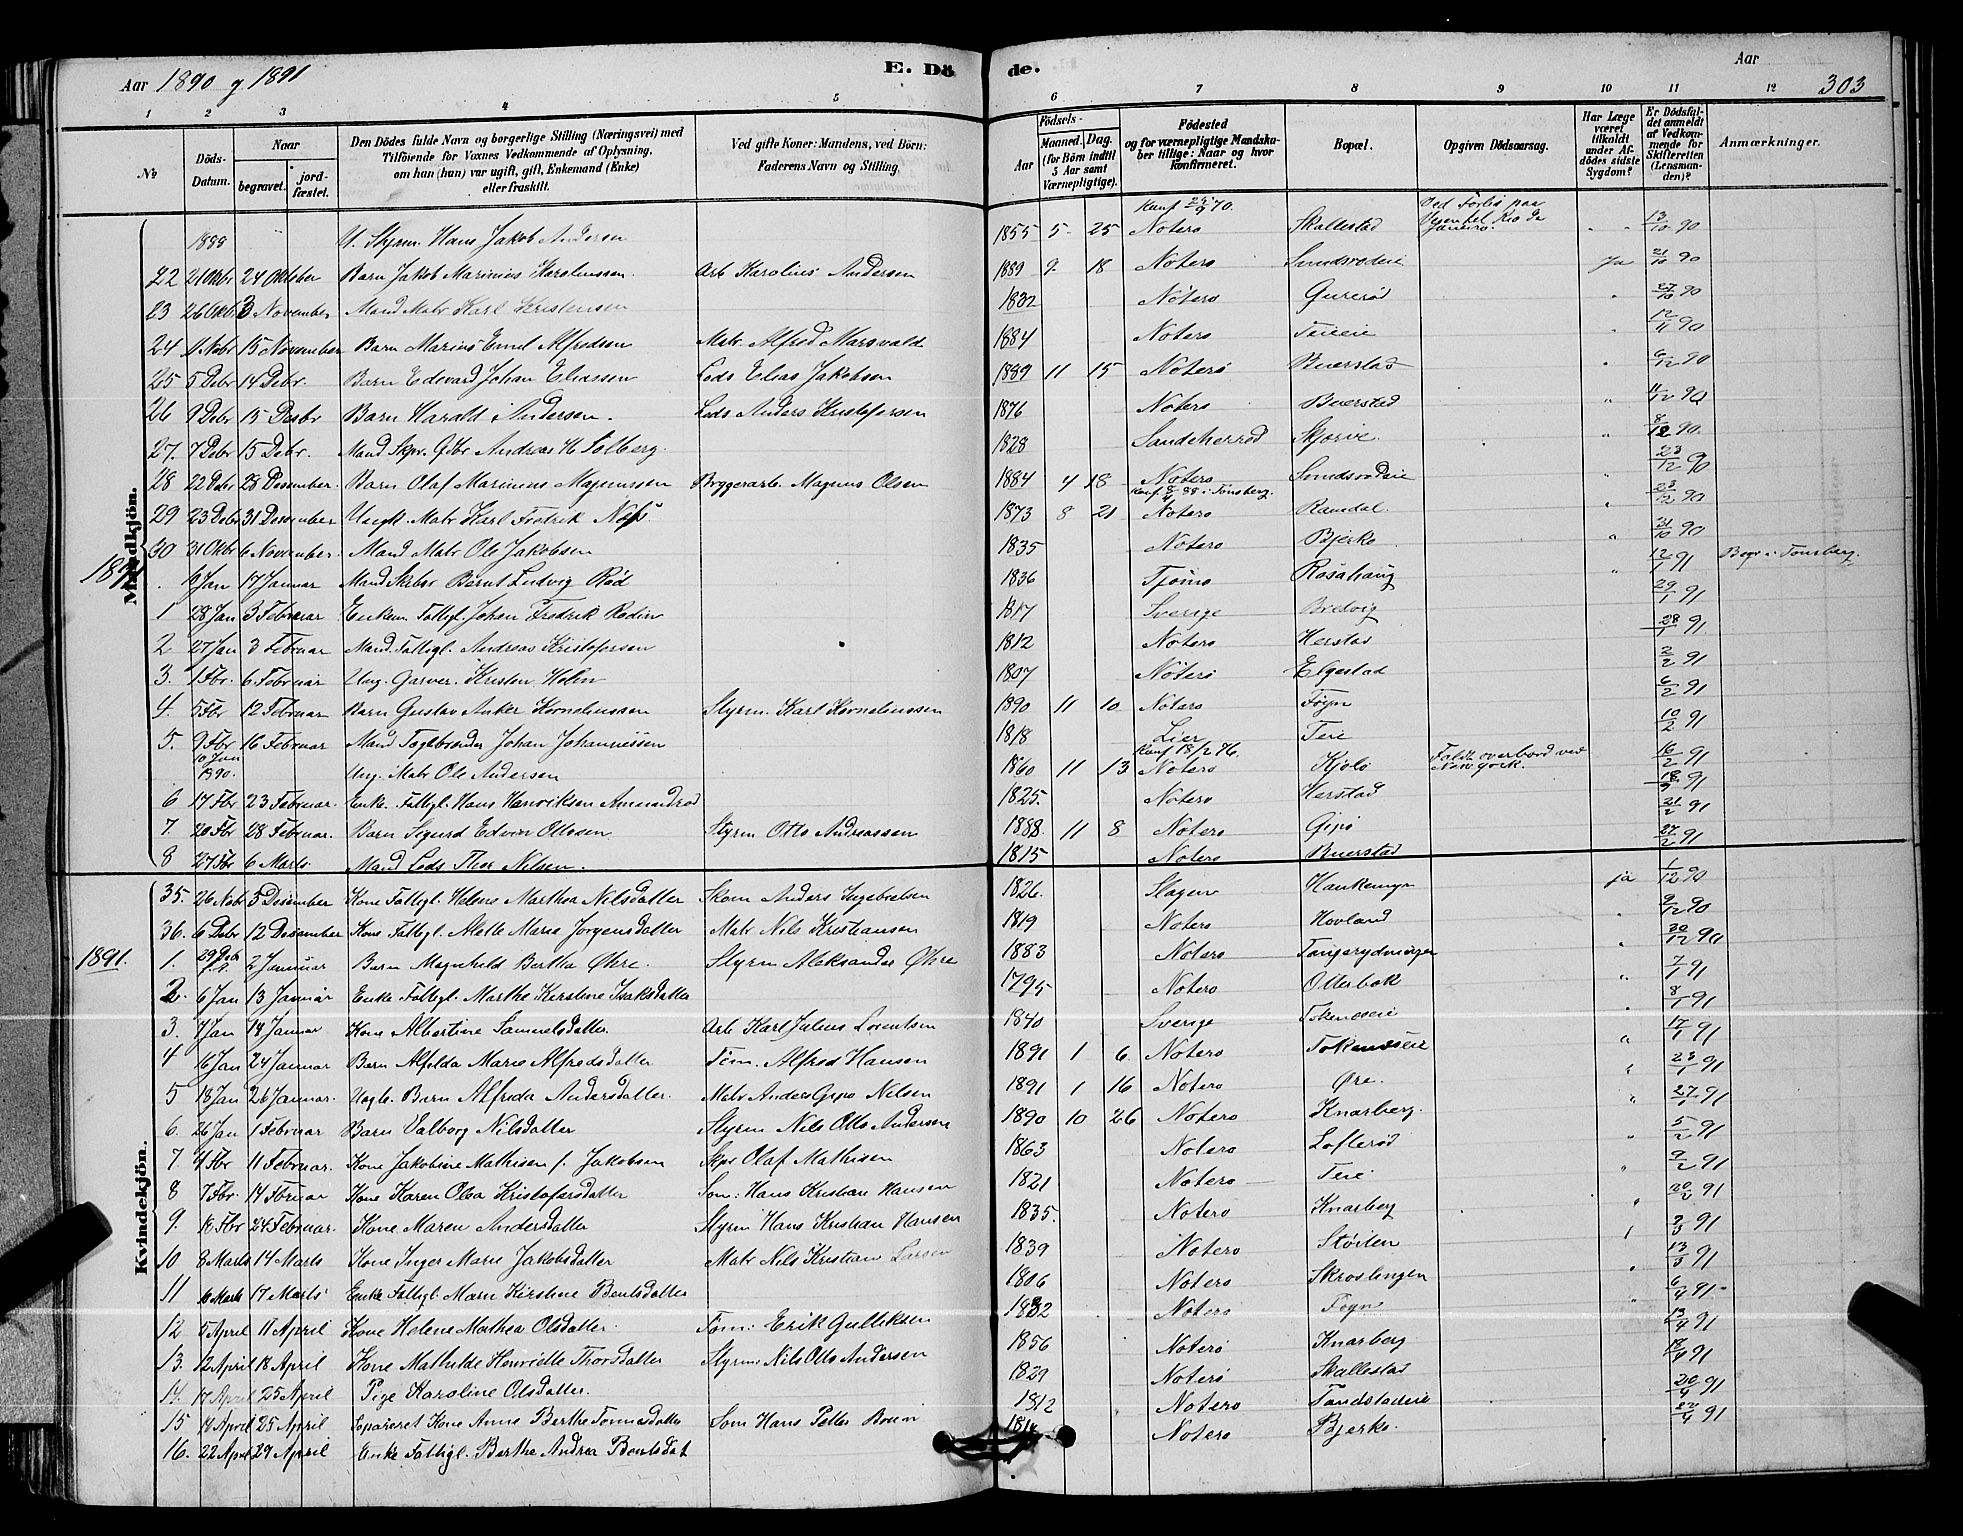 Aar 1890 g 1891 E. Döde. Aar 303
1 2 3 4 5 6 7 8 9 10 11 12
No Döds-Datum. Naar begravet. jord-fæstet. Den Dödes fulde Navn og borgerlige Stilling (Næringsvei) med Tilföiende for Voxnes Vedkommende af Oplysning, om han (hun) var ugift, gift, Enkemand (Enke) eller fraskilt. Ved gifte Koner: Mandens, ved Börn: Faderens Navn og Stilling. Födsels- Aar Maaned. Dag. (for Börn indtil 5 Aar samt Værnepligtige). Födested og for værnepligtige Mandskaber tillige: Naar og hvor konfirmeret. Bopæl. Opgiven Dödsaarsag. Har Læge været tilkaldt under Afdödes sidste Sygdom? Er Dödsfaldet anmeldt af Vedkommende for Skifteretten (Lensmanden)? Anmærkninger.
Mandkjön.
1888 U. Styrm. Hans Jakob Andersen 1855 5 25 Nøterø Skallestad 13/10 90
22 21 Oktbr 24 Oktober Barn Jakob Marinius Karolinssen Arb Karolius Andersen 1889 9 18 Nøterø Smidsrødeie Ja 21/10 90
23 26 Oktb 3 November Mand Matr Karl Kristensen 1832 Nøterø Gurerød " 27/10 90
24 11 Nobr 15 November Barn Marius Emil Alfredsen Matr. Alfred Marsvald 1884 Nøterø Teieeie " 12/11 90
25 5 Debr 14 Debr. Barn Edevard Johan Eliassen Lods Elias Jakobsen 1889 11 15 Nøterø Buerstad " 6/12 90
26 9 Debr 15 Desbr Barn Harald Andersen. Lods Anders Kristofersen 1876 Nøterø Buerstad " 11/12 90
27. 7 Debr 15 Debr. Mand Skpr. Gbr Andreas H Solberg. 1828 Sandeherred Skjerve. " 8/12 90.
28 22 Debr 28 Desember. Barn Olaf Marinius Magnussen Bryggerarb. Magnus Olsen 1884 4 18 Nøterø Smidsrødeie " 23/12 90
29 23 Debr 31 Desember Ungk. Matr Karl Fredrik Næss 1873 8 21 Konf 8/4 88 i Tønsberg. Nøterø Ramdal. " 23/12 90
30 31 Oktbr 6 November. Mand Matr Ole Jakobsen 1835 Nøterø Bjerkø " 31/10 90
1891 17 Januar Mand Skibsr Bernt Ludvig Rød 1836 Tjømø Rosahaug " 12/1 91 Begr i Tønsberg.
1 28 Jan 3 Februar Enkem Fattigl. Johan Fredrik Rodin 1817 Sverige Bredvig 29/1 91
2 27 Jan 3 Februar Mand. Fattigl. Andreas Kristofersen 1812 Nøterø Herstad 28/1 91
3. 1 Fbr. 6 Februar Ung. Garver. Kristen Holm 1807 Nøterø Elgestad 2/2 91
4. 5 Fbr 12 Februar Barn Gustav Anker Korneliussen Styrm. Karl Korneliussen 1890 11 10 Nøterø Føyn 6/2 91
5. 9 Fbr 16 Februar Mand Johan Johannessen 1818 Lier Teie 10/2 91
10 Juni 1890. Ung. Matr Ole Andersen 1860 11 13 Konf 18/2 76. Nøterø Kjøle Faldt overbord ved New York. 16/2 91
6 17 Fbr 23 Februar. Enke. Fattigl. Hans Henriksen Amundrød 1825. Nøterø Herstad 91
7. 20 Fbr 28 Februar. Barn Sigurd Edvin Ottosen Styrm Otto Andreassen 1888. 11 8 Nøterø Gipø 21/2 91
8 27 Fbr 6 Marts. Mand Lods Thor Nilsen. 1815 Nøterø Buerstad 27/2 91
Kvindekjön.
35. 26 Nobr 5 Desember Kone Fattigl. Helene Marthea Nilsdatter Skom Anders Ingebretsen 1826. Slagen Haukemyr ja 1/12 90
36. 6 Debr 12 Desember Kone Fattigl. Alette Maria Jørgensdatter Matr Nils Kristiansen 1819 Nøterø Hovland " 9/12 90
1891. 1. 29 Deb 2 Januar Barn Magnhild Bertha Øhre. Styrm Aleksander Øhre 1883 Nøterø " 30/12 90
2. 6 Jan 13 Januar Enke Fattigl. Marthe Kirstine Isaksdatter 1795 Nøterø Otterbæk " 7/1 91
3. 7 Jan 14 Januar Kone Albertine Samuelsdatter. Arb Karl Julius Lorentsen 1840 Sverige Tokenæseie " 8/1 91
4 16 Jan 24 Januar Barn Alfilda Marie Alfredsdatter Tøm. Alfred Hansen 1891 1 6. Nøterø Tokenæseie " 17/1 91
5 18 Jan 26 Januar. Uægte. Barn Alfreda Andersdatter. Matr Anders Gipø Nilsen 1891 1 16 Nøterø Øre. " 23/1 91
6. 26 Jan 1 Februar Barn Valborg Nilsdatter Styrm Nils Otto Andersen 1890 10 26 Nøterø Knarberg. " 27/1 91
7 4 Fbr 11 Februar. Kone Jakobine Mathisen f. Jakobsen Skpr Olaf Mathisen 1863 Nøterø Lofterød " 5/2 91
8 7 Fbr. 14 Februar Kone Karen Olea Kristofersdatter Søm: Hans Kristian Hansen 1821 Nøterø Teie " 9/2 91
9. 18 Fbr 24 Februar. Kone Maren Andersdatter Styrm Hans Kristian Hansen 1835. Nøterø Knarberg " 20/2 91
10 8 Marts 14 Marts Kone Inger Marie Jakobsdatter Matr Nils Kristian Larsen 1839 Nøterø Støiten 2/3 91
11 10 Marts 17 Marts Enke Fattigl. Maren Kirstine Bentsdatter 1806 Nøterø Skroslingen " 13/3 91
12 5 April 11 April Kone Helene Mathea Olsdatter. Tøm: Erik Gulliksen 1832 Nøterø Føyn " 6/4 91
13. 12 April 18 April Kone Mathilde Henriette Thorsdatter Styrm: Nils Otto Andersen 1856 Nøterø Knarberg 13/4 91
14. 17 April 25 April Pige Karoline Olsdatter. 1829 Nøterø Skallestad 91
15 18 April 25 April Separeret Kone Anne Berthe Tønnesdatter Søm Hans Petter Bruun 1812 Nøterø 20/4 91
16. 22 April 29 April Enke Fattigl. Berthe Andrea Bentsdat Nøterø Bjerkø. 22/4 91